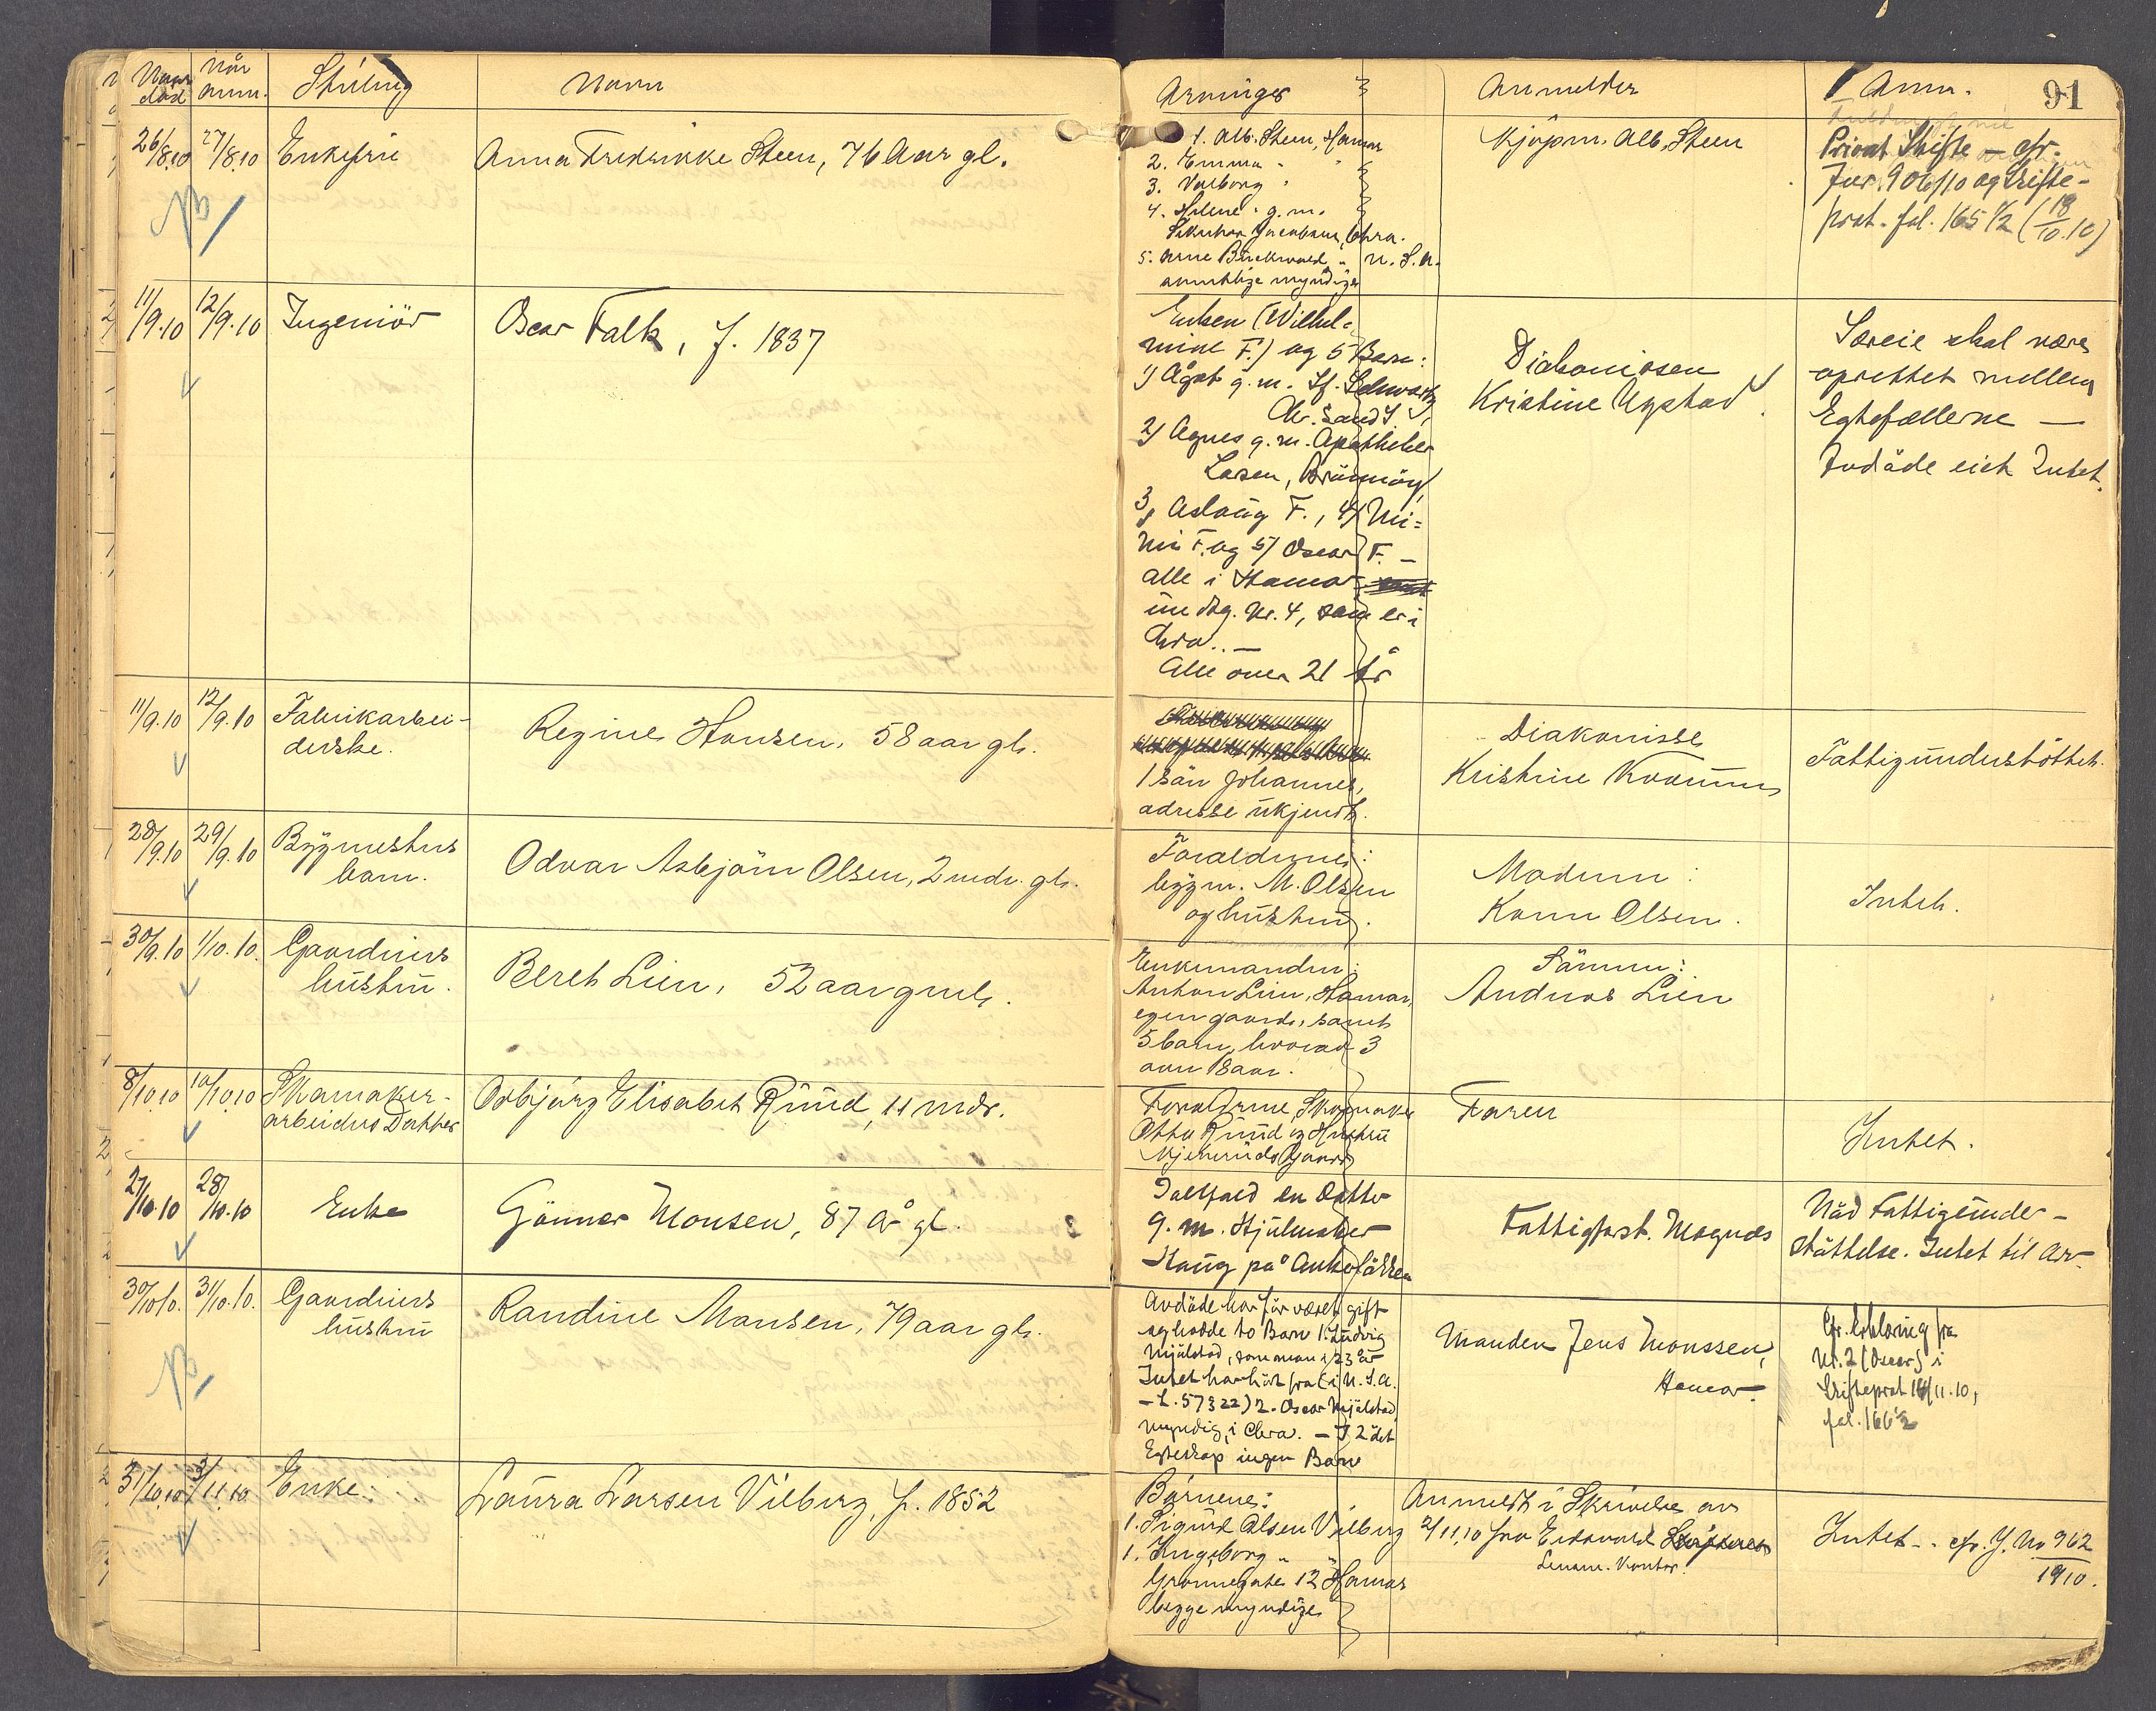 Naar død
Når anm.
Stilling
Navn
Arvinger
Anmelder
Anm.
91
26/8.10
27/8.10
Enkefrue
Anna Fredrikke Steen, 76 Aar gl.
1. Alb. Steen, Hamar
2. Emma "
3. Valborg "
4. Helene " g.m.
Chra.
5. Arne " U.S.A.
samtlige myndige
Kjøpm. Alb. Steen
Privat Skifte - cfr.
Jur. 906/10 og Skifte-
prot. fol. 165 1/2 (18/10.10)
11/9.10
12/9.10
Ingeniör
Oscar Falk, f. 1837
Enken (Wilhel-
mine F.) og 5 Barn:
1) Ågot g.m.
Chr.sand S
2) Agnes g.m. Apotheker
Larsen, Brönnöy,
3) Aslaug F., 4) Mi-
mi F. og 5) Oscar F. -
alle i Hamar
undtg. Nr. 4, som er i
Chra.. -
Alle over 21 År
Diakonissen
Kristine Ugstad
Særeie skal være
oprettet mellem
Egtefællerne -
Avdöde eiet Intet.
11/9.10
12/9.10
Fabrikarbei-
derske.
Regine Hansen, 58 aar gl.
1 sön Johannes,
adresse ukjendt.
Diakonisse
Kristine
Fattigunderstöttet.
28/9.10
29/9.10
Bygmesters
barn.
Odvar Asbjörn Olsen, 2 mdr. gl.
Forældrene:
bygm. M. Olsen
og hustru.
Moderen:
Karen Olsen.
Intet.
30/9.10
1/10.10.
Gaardeiers
hustru.
Beret Lien, 52 aar gml.
Enkemanden:
Anton Lien, Hamar,
egen gaard, samt
5 barn, hvorav 3
over 18 aar.
Sönnen:
Andreas Lien
8/10.10
10/10.10
Skomaker-
arbeiders Datter
Asbjörg Elisabet Ruud, 11 mdr.
Forældrene, Skomaker
Otto Ruud og Hustru
Gaard
Faren
Intet.
27/10.10
28/10.10
Enke
Gunner Monsen, 87 År gl.
Ialfald en Datter
g.m. Hjulmaker
Haug på Ankerløkken
Fattigforst. Mognæs
Nåd Fattigunder-
støttelse. Intet til Arv.
30/10.10.
31/10.10.
Gaardeiers
hustru
Randine Monsen, 79 aar gl.
Avdöde har för været gift
og hadde to Barn 1. Ludvig
Mjälstad, som man i 23 år
Intet har hört fra (i U.S.A.
- L. 57 § 22) 2. Oscar Mjälstad
myndig, i Chra. - I 2det
Egteskap ingen Barn
Manden Jens Monssen,
Hamar
Cfr. Erklæring fra
Nr. 2 (Oscar) i
Skifteprot 16/11.10,
fol. 166 1/2
31/10.10
3/11.10
Enke.
Laura Larsen Vilberg, f. 1852
Börnene:
1. Sigurd Olsen Vilberg
1. Ingeborg " "
Grønnegate 12 Hamar
begge myndige
Anmeldt i Skrivelse av
2/11.10 fra Eidsvold
Lensm. Kontor.
Intet - cfr. J. No 962
1910.